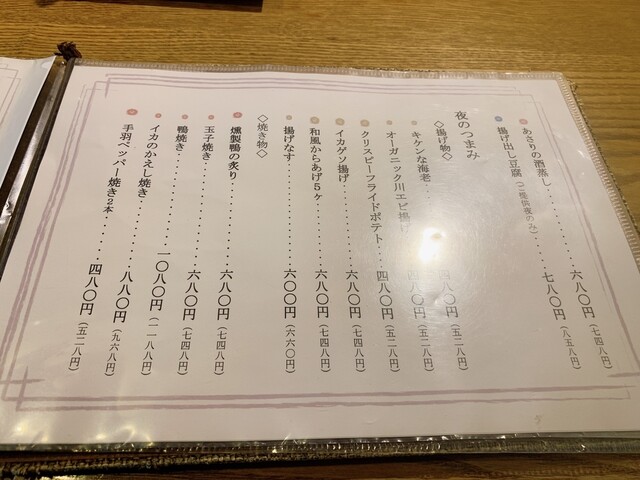 あさりの酒蒸し・・・・・・・・・・六八〇円（七四八円）
揚げ出し豆腐（ご提供夜のみ）・・・・七八〇円（八五八円）
夜のつまみ
◇揚げ物◇
キケンな海老・・・・・四八〇円（五二八円）
オーガニック川エビ揚げ・・四八〇円（五二八円）
クリスピーフライドポテト・・四八〇円（五二八円）
イカゲソ揚げ・・・・・・・・・六八〇円（七四八円）
和風からあげ5ヶ・・・・・・・六八〇円（七四八円）
揚げなす・・・・・・・・・・・六〇〇円（六六〇円）
◇焼き物◇
燻製鴨の炙り・・・・・・・・・六八〇円（七四八円）
玉子焼き・・・・・・・・・・・六八〇円（七四八円）
鴨焼き・・・・・・・・・・・一〇八〇円（一一八八円）
イカのかえし焼き・・・・・・・八八〇円（九六八円）
手羽ペッパー焼き2本・・・・・四八〇円（五二八円）